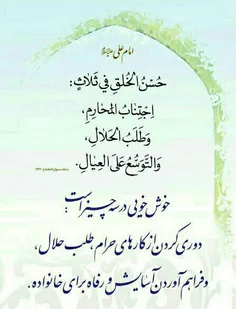 امام علی علیه‌السلام
حُسْنُ الْخُلقِ فِی ثَلاثٍ:
اِجْتِنابُ الْمَحارِمِ،
وَطَلَبُ الحَلالِ،
وَالتَّوَسُّعُ عَلَى العِيالِ.
خوش خویی در سه چیز است:
دوری کردن از کارهای حرام، طلب حلال،
و فراهم آوردن آسایش و رفاه برای خانواده.